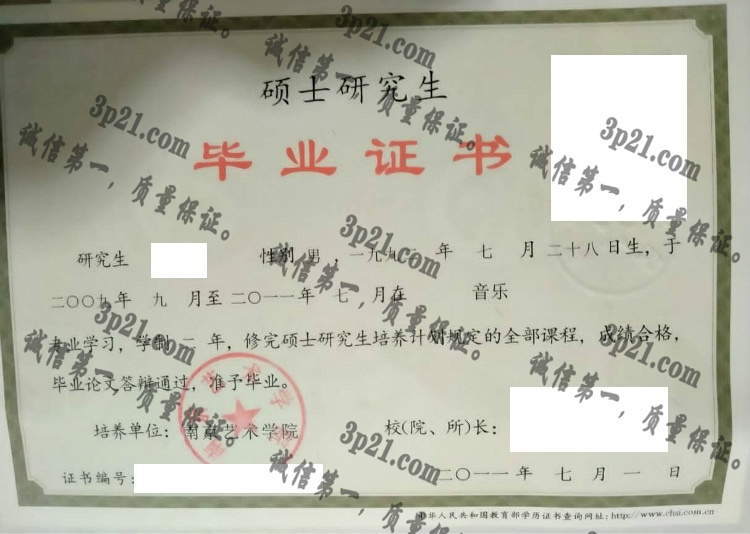 硕士研究生
毕业证书
研究生 性别 男，一九九 年 七 月 二十八 日生，于
二〇〇九年 九 月至二〇一一年 七 月在 音乐
专业学习，学制 二 年，修完硕士研究生培养计划规定的全部课程，成绩合格，
毕业论文答辩通过，准予毕业。
培养单位：南京艺术学院 校(院、所)长：
证书编号： 二〇一一年 七 月 一 日
中华人民共和国教育部学历证书查询网址：http://www.chsi.com.cn
3p21.com
诚信第一，质量保证。
3p21.com
诚信第一，质量保证。
3p21.com
诚信第一，质量保证。
3p21.com
诚信第一，质量保证。
3p21.com
诚信第一，质量保证。
3p21.com
诚信第一，质量保证。
3p21.com
诚信第一，质量保证。